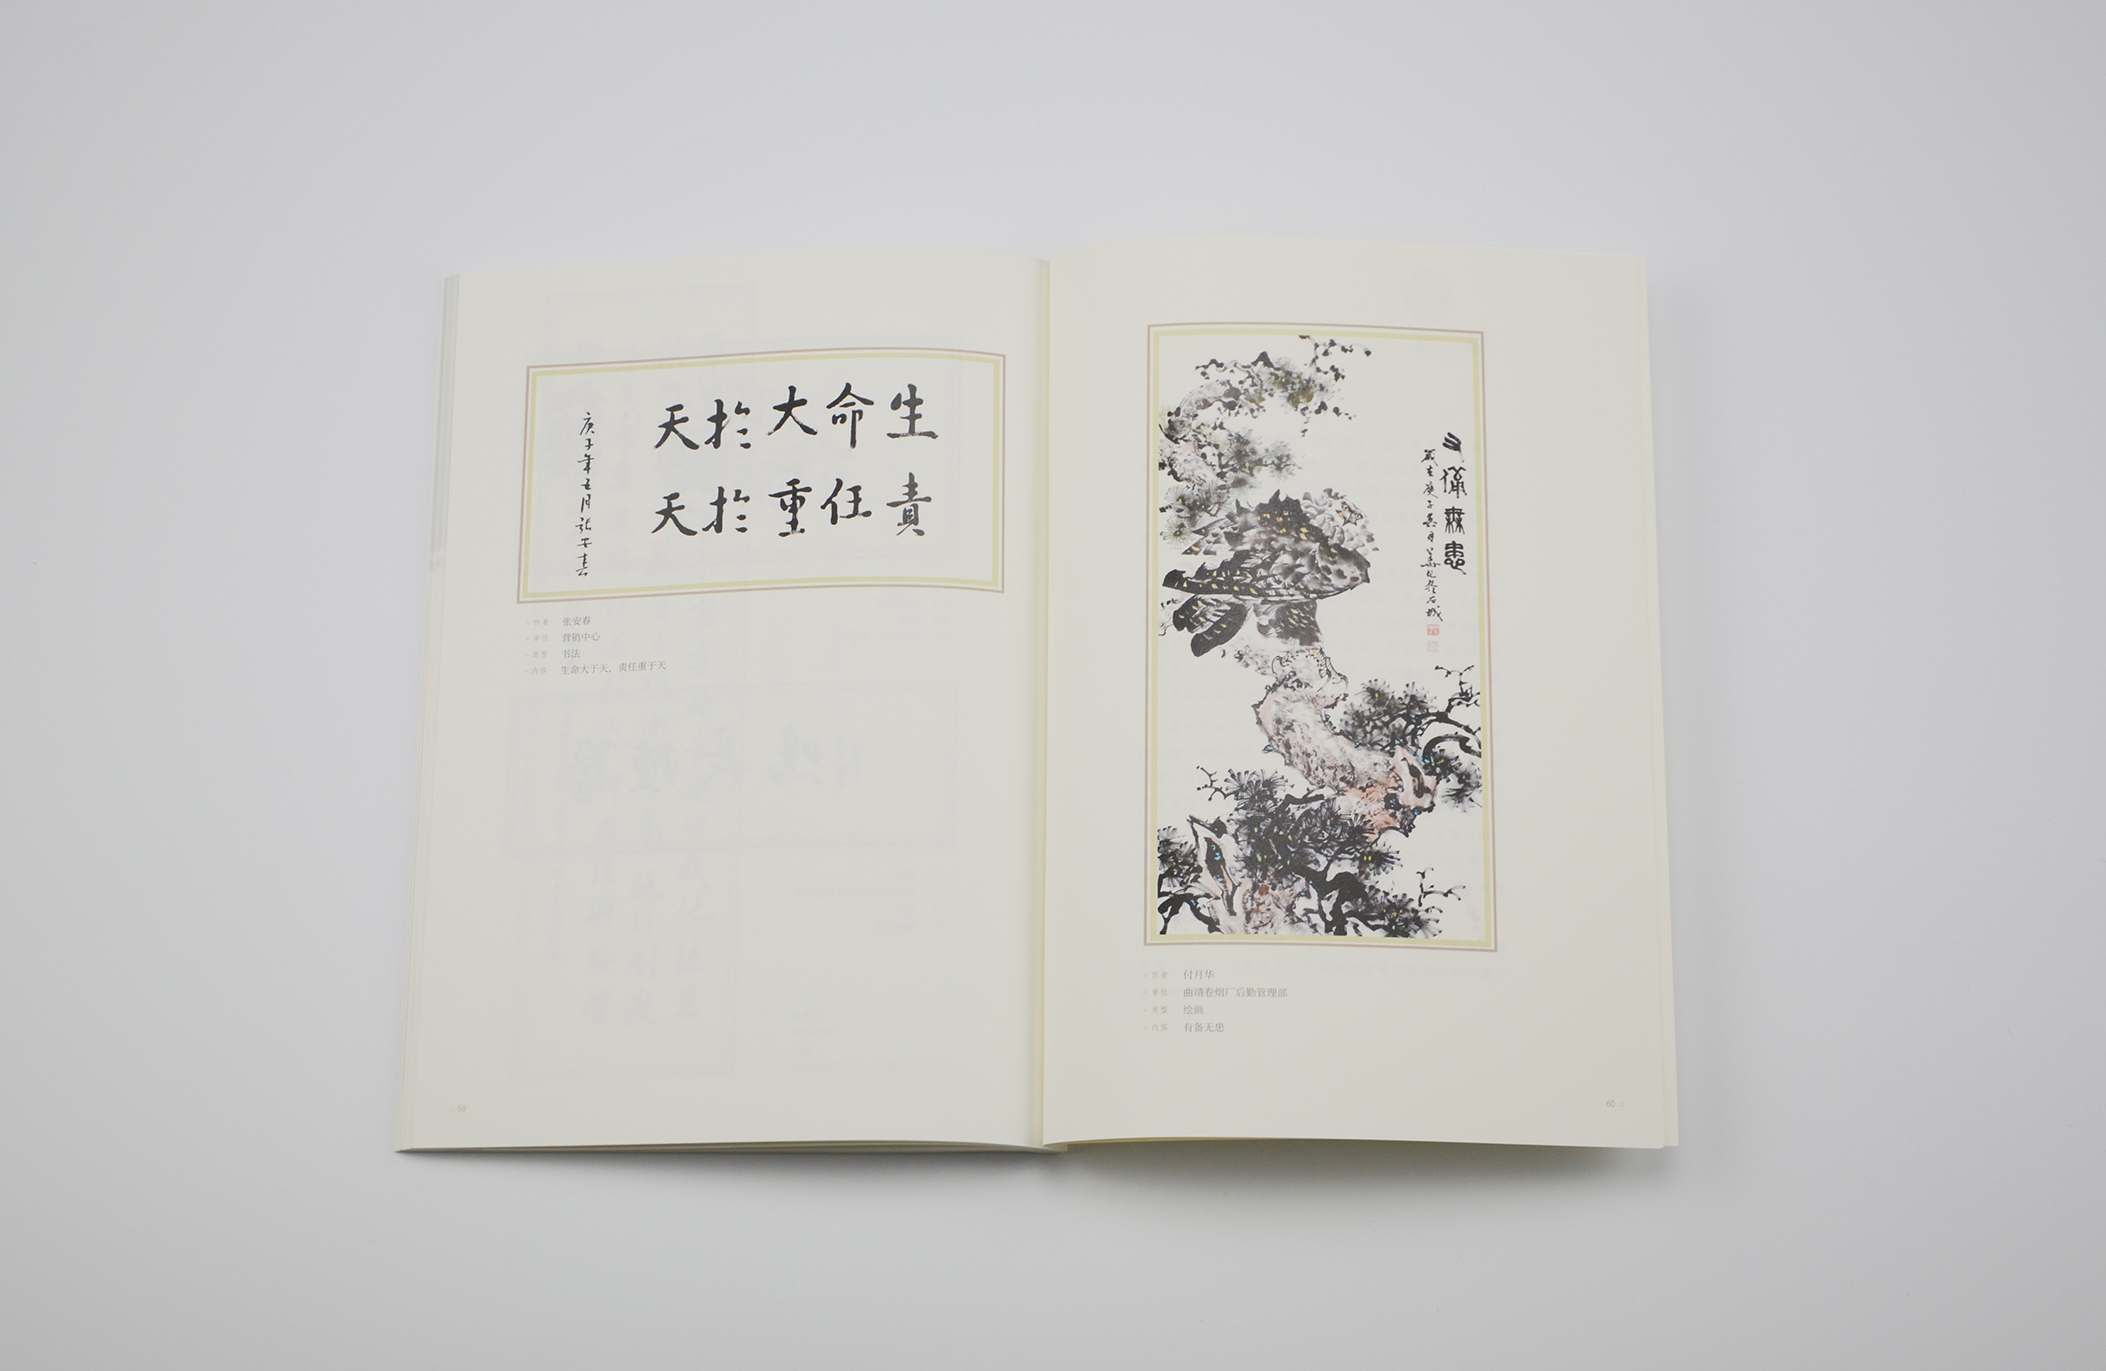 生命大扵天
責任重扵天
庚子年五月張安春
作者 张安春
单位 营销中心
类型 书法
内容 生命大于天，责任重于天
59
有備無患
歲在庚子
作者 付月华
单位 曲靖卷烟厂后勤管理部
类型 绘画
内容 有备无患
60